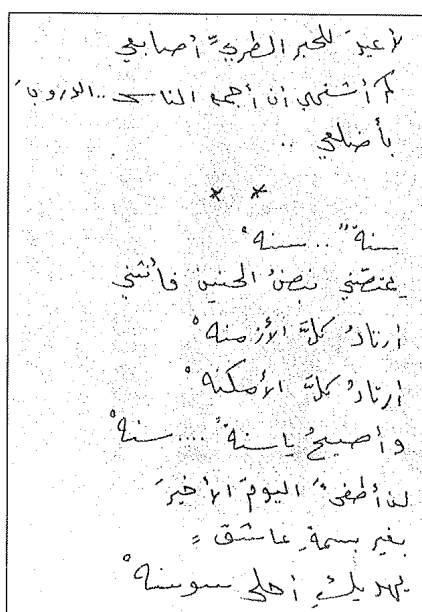 لأعيدَ للحبر الطريِّ أصابعي
كم أشتهي أن أجمع الناس .. الدروبَ
بأضلعي ..
* *
سنةٌ .. سنهْ
يمتصّني نبضُ الحنين فأنثني
أرتادُ كلَّ الأزمنهْ
أرتادُ كلَّ الأمكنهْ
وأصيحُ يا سنةً .... سنهْ
لن أطفئَ اليومَ الأخيرَ
بغير بسمةِ عاشقٍ
يهديكِ أحلى سوسنهْ